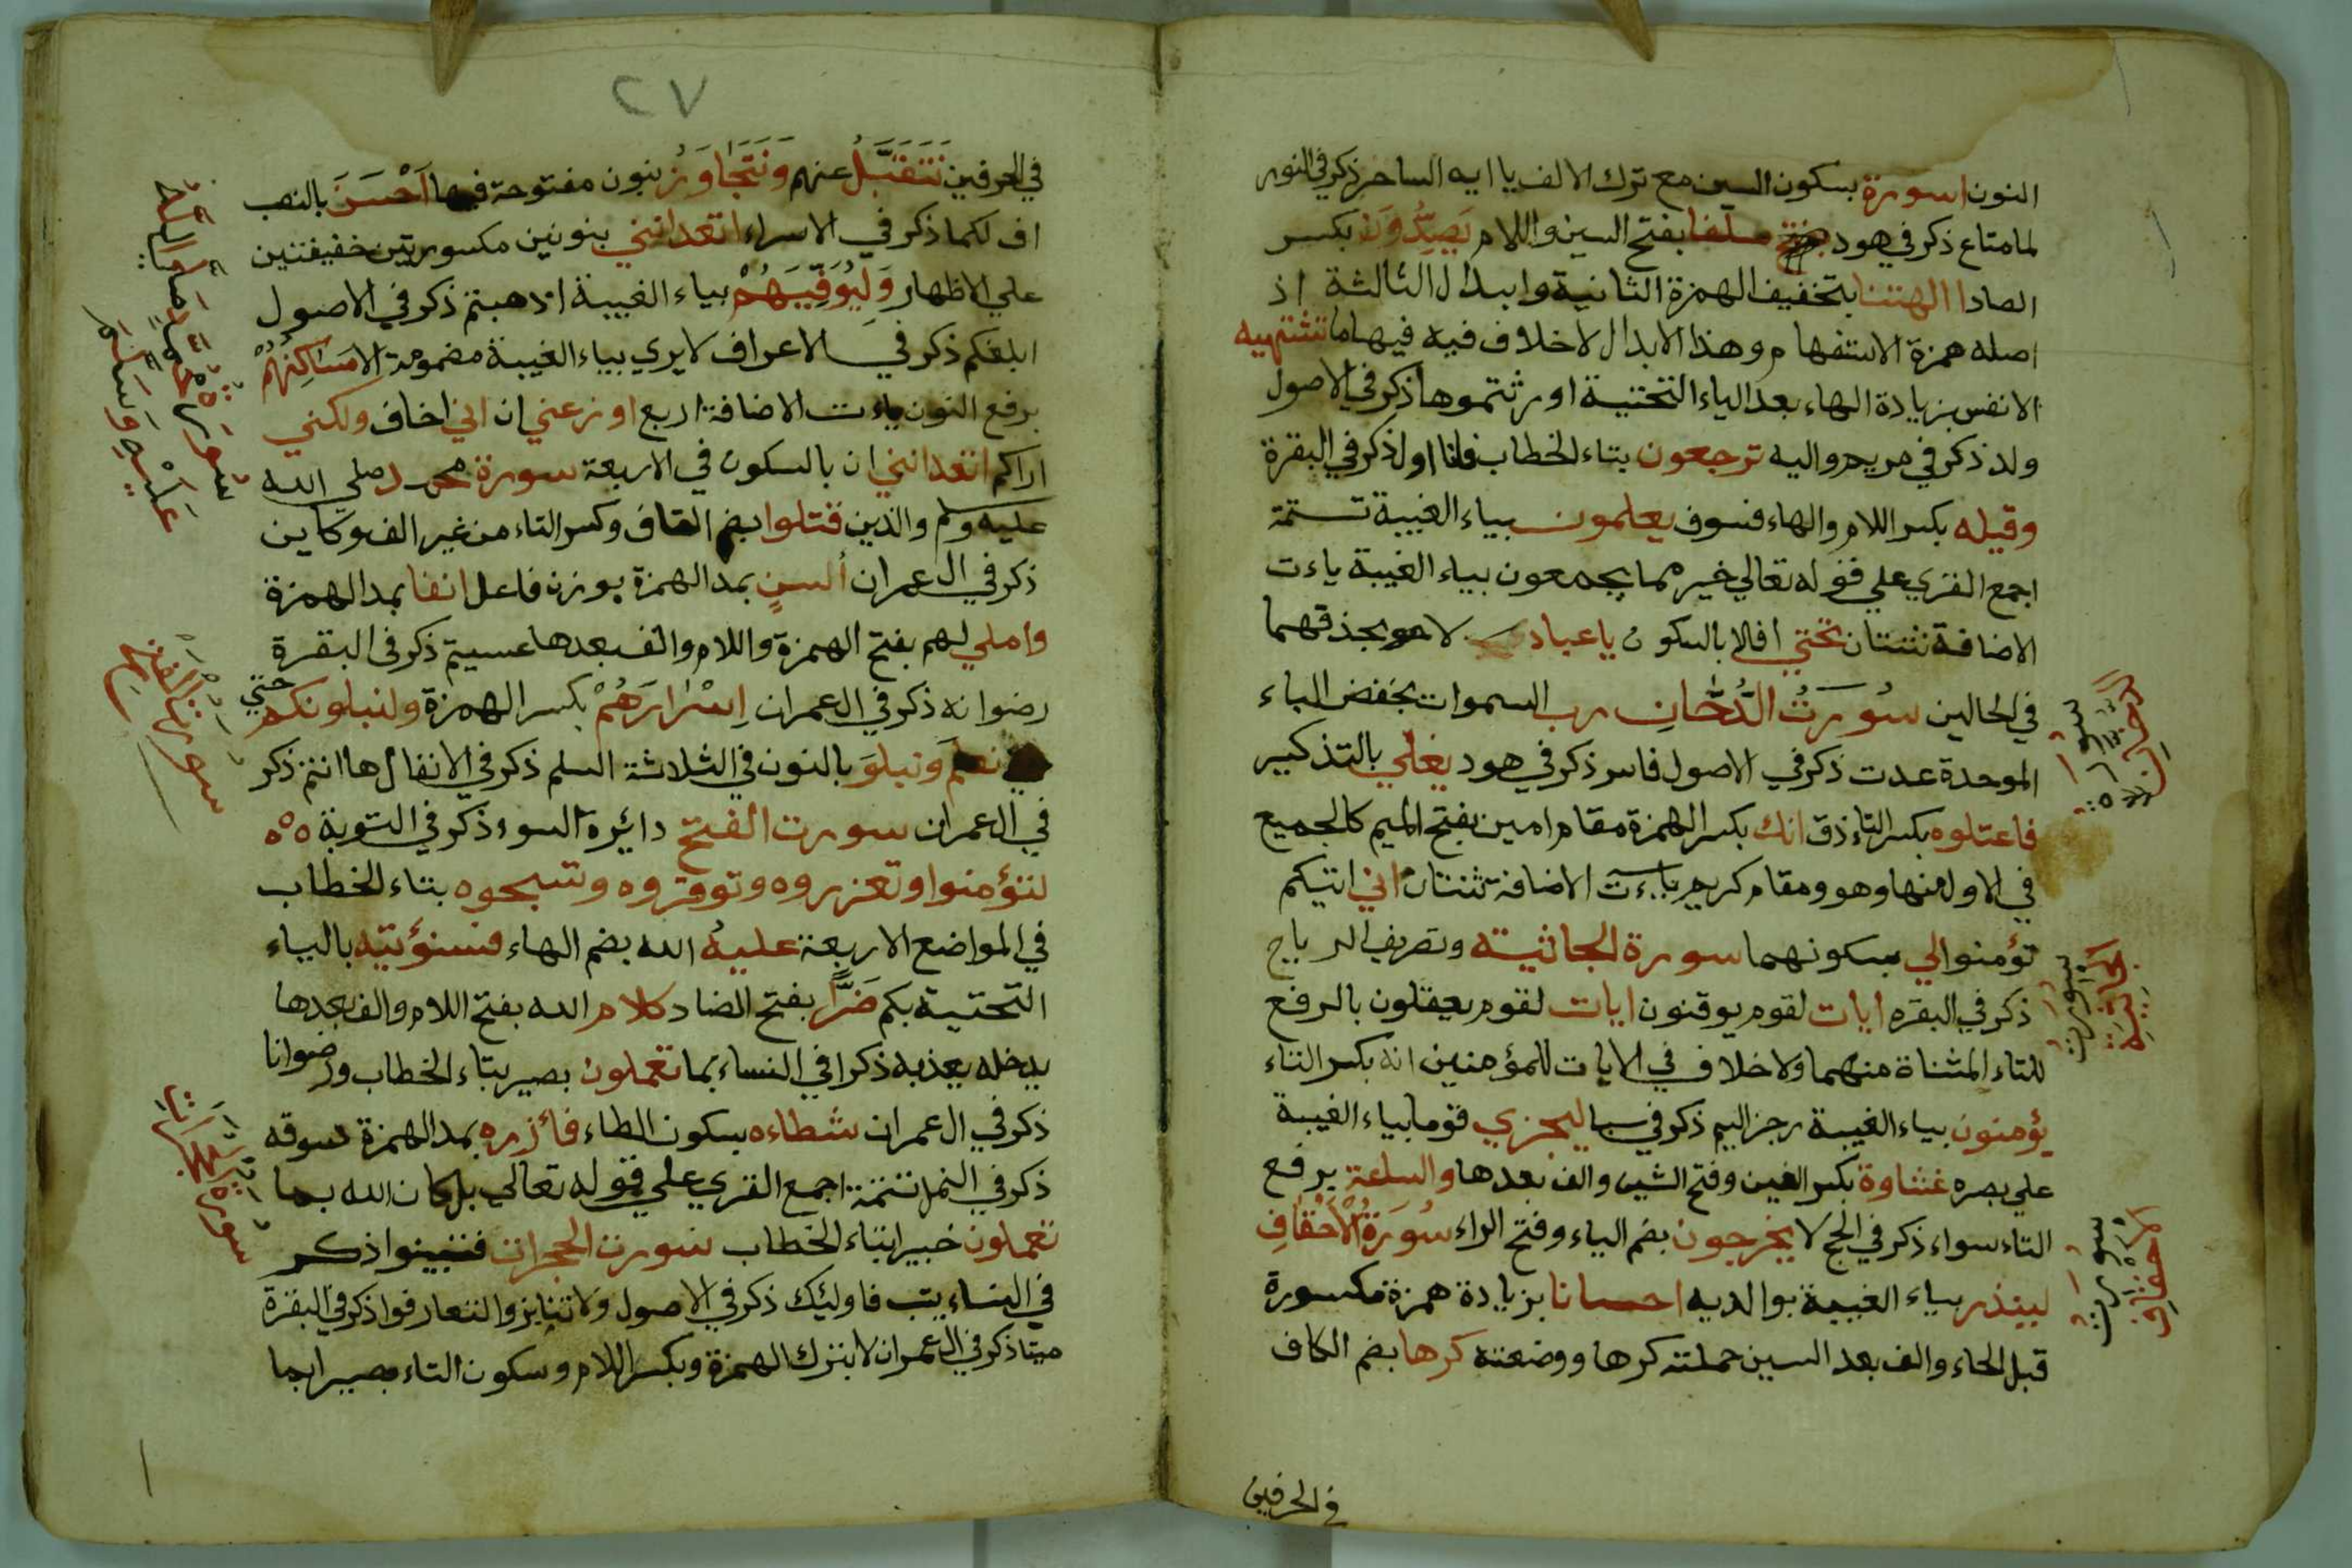 النون اسورة بسكون السين مع ترك الالف يا ايه الساحر ذكر في النور
لما متاع ذكر في هود سلفا بفتح السين واللام يَصِدُّونَ بكسر
الصاد االهتنا بتخفيف الهمزة الثانية وابدال الثالثة اذ
اصله همزة الاستفهام وهذا الابدال لاخلاف فيه فيها ما تشتهيه
الانفس بزيادة الهاء بعد الياء التحتية اورثتموها ذكر في الاصول
ولد ذكر في مريم واليه ترجعون بتاء الخطاب فانا اول ذكر في البقرة
وقيله بكسر اللام والهاء فسوف يعلمون بياء الغيبة تستمة
اجمع القري علي قوله تعالي خير مما يجمعون بياء الغيبة ياءت
الاضافة ثنتان تحتي افلا بالسكون يا عبادي لا بحذفهما
في الحالين سُورَتُ الدُّخَانِ رب السموات بخفض الباء
الموحدة عدت ذكر في الاصول فاسر ذكر في هود يغلي بالتذكير
فاعتلوه بكسر التاء ذق انك بكسر الهمزة مقام امين بفتح الميم كالجميع
في الاول منها وهو ومقام كريم ياءت الاضافة ثنتان اني اتيكم
تؤمنوا لي بسكونهما سورة الجاثيته وتصريف الرياح
ذكر في البقره ايات لقوم يوقنون ايات لقوم يعقلون بالرفع
للتاء المثناة منهما ولاخلاف في الايات للمؤمنين انه بكسر التاء
يؤمنون بياء الغيبة رجز اليم ذكر في سبا ليجزي قوما بياء الغيبة
علي بصره غشاوة بكسر الغين وفتح الشين والف بعدها والساعة برفع
التاء سواء ذكر في الحج لا يخرجون بضم الياء وفتح الراء سُورَةُ الْاَحْقَافِ
لينذر بياء الغيبة بوالديه احسانا بزيادة همزة مكسورة
قبل الحاء والف بعد السين حملته كرها ووضعته كرها بضم الكاف
في الحرفين
سورة الدخان
سورت الجاثية
سورت الاحقاف
٢٧
في الحرفين نَتَقَبَّلُ عنهم وَنَتَجَاوَزُ بنون مفتوحة فيها اَحْسَنَ بالنصب
اف لكما ذكر في الاسراء اتعدانني بنونين مكسورتين خفيفتين
علي الاظهار وَلِيُوَفِّيَهُمْ بياء الغيبة اذهبتم ذكر في الاصول
ابلغكم ذكر في الاعراف لايري بياء الغيبة مضمومة الا مَسَاكِنُهُمْ
برفع النون ياءت الاضافة اربع اوزعني ان اني اخاف ولكني
اراكم اتعدانني ان بالسكون في الاربعة سورة محمد صلي الله
عليه وسلم والذين قتلوا بضم القاف وكسر التاء من غير الف وكاين
ذكر في ال عمران أٰسِنٍ بمد الهمزة بوزن فاعل انفا بمد الهمزة
واملي لهم بفتح الهمزة واللام والف بعدها عسيتم ذكر في البقرة
رضوانه ذكر في ال عمران اِسْرَارَهُمْ بكسر الهمزة ولنبلونكم حتي
نعلم وَنبلوَ بالنون في الثلاثة السلم ذكر في الانفال ها انتم ذكر
في ال عمران سورت الفتح دائرة السوء ذكر في التوبة
لتؤمنوا وتعزروه وتوقروه وتسبحوه بتاء الخطاب
في المواضع الاربعة عليهُ الله بضم الهاء فسنؤتيه بالياء
التحتية بكم ضَرًّا بفتح الضاد كلام الله بفتح اللام والف بعدها
يدخله يعذبه ذكرا في النساء بما تعملون بصير بتاء الخطاب ورضوانا
ذكر في ال عمران شطاءه بسكون الطاء فاٰزره بمد الهمزة سوقه
ذكر في النمل تتمة اجمع القري علي قوله تعالي بل كان الله بما
تعملون خبيرا بتاء الخطاب سورت الحجرات فتبينوا ذكر
في النساء يتب فاوليك ذكر في الاصول ولا تنابزوا لتعارفوا ذكر في البقرة
ميتا ذكر في ال عمران لا بترك الهمزة وبكسر اللام وسكون التاء بصير ابما
سورة محمد صلي الله
عليه وسلم
سورة الفتح
سورة الحجرات